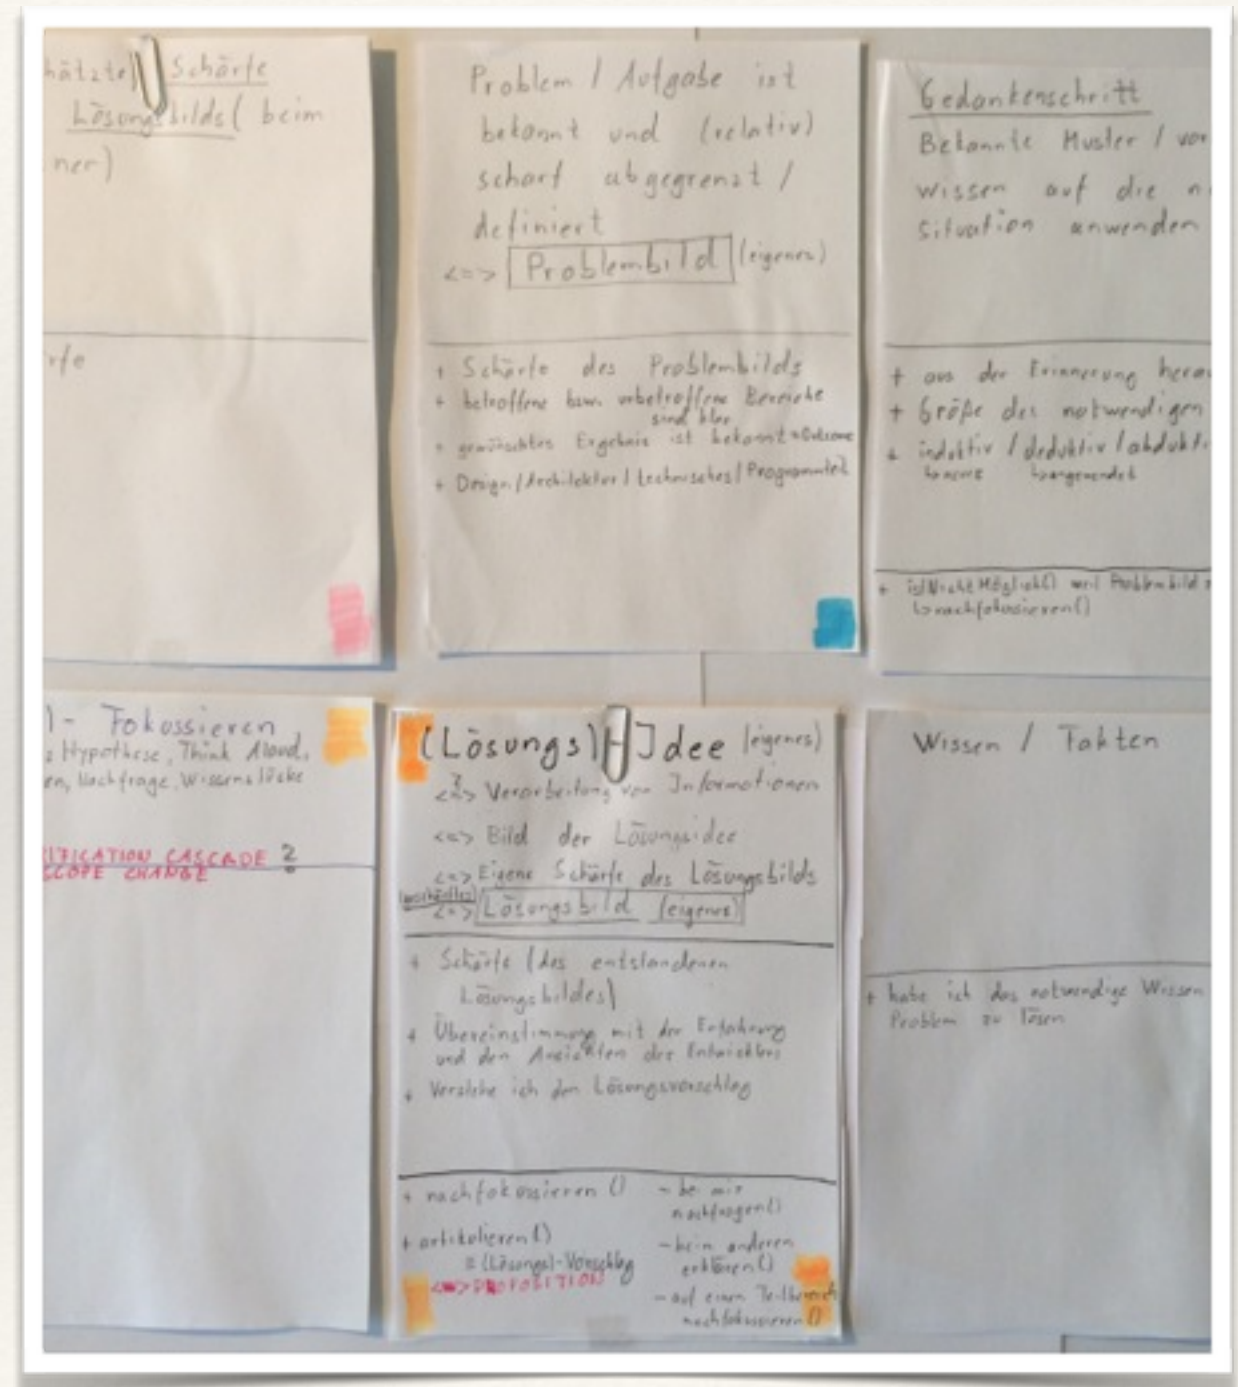 Schärfe
Lösungsbilds ( beim
ner)
rfe
Problem / Aufgabe ist
bekannt und (relativ)
scharf abgegrenzt /
definiert
<=> Problembild (eigenes)
+ Schärfe des Problembilds
+ betroffene bzw. unbetroffene Bereiche
sind klar
+ gewünschtes Ergebnis ist bekannt = Outcome
+ Design / Architektur / technisches / Programmteil
Gedankenschritt
Bekannte Muster / vor
wissen auf die n
Situation anwenden
+ aus der Erinnerung herau
+ Größe des notwendigen
+ induktiv / deduktiv / abdukti
istNichtMöglich() weil Problembild
↳ nachfokussieren()
)- Fokussieren
Hypothese, Think Aloud,
en, Nachfrage, Wissenslücke
IFICATION CASCADE ?
SCOPE CHANGE
(Lösungs)-Idee (eigenes)
<?=> Verarbeitung von Informationen
<=> Bild der Lösungsidee
<=> Eigene Schärfe des Lösungsbilds
<=> Lösungsbild (eigenes)
+ Schärfe (des entstandenen
Lösungsbildes)
+ Übereinstimmung mit der Erfahrung
und den Ansichten des Entwicklers
+ Verstehe ich den Lösungsvorschlag
+ nachfokussieren ()
+ artikulieren ()
= (Lösungs)-Vorschlag
<=> PROPOSITION
- bei mir
nachfragen()
- beim anderen
erklären()
- auf einen Teilbereich
nachfokussieren()
Wissen / Fakten
+ habe ich das notwendige Wissen
Problem zu lösen